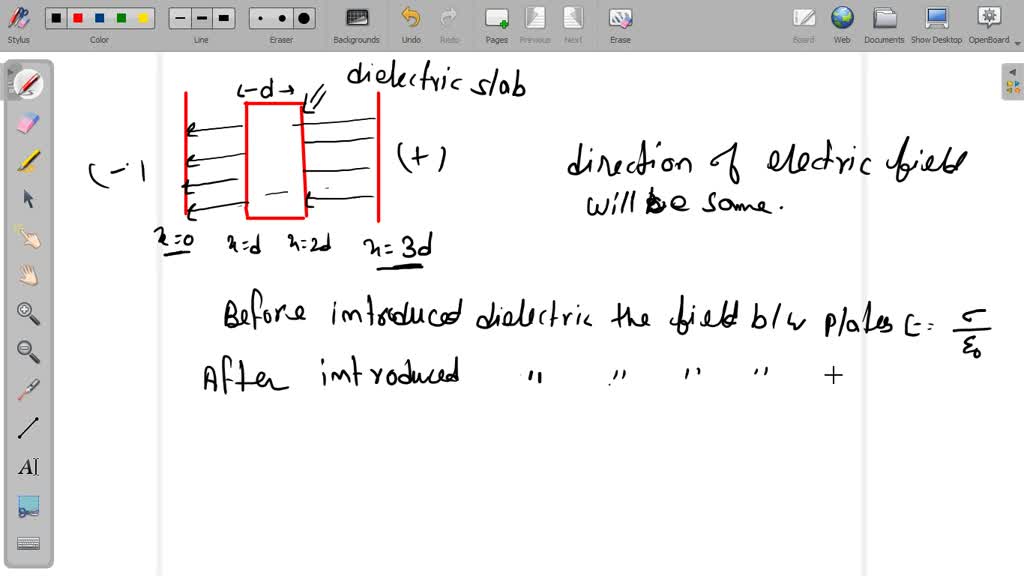 Stylus Color Line Eraser Backgrounds Undo Redo Pages Previous Next Erase Board Web Documents Show Desktop OpenBoard
dielectric slab
←d→
(-)
(+)
direction of electric field
will be same.
x=0 x=d x=2d x=3d
Before introduced dielectric the field b/w plates E = σ/ε₀
After introduced " " " "